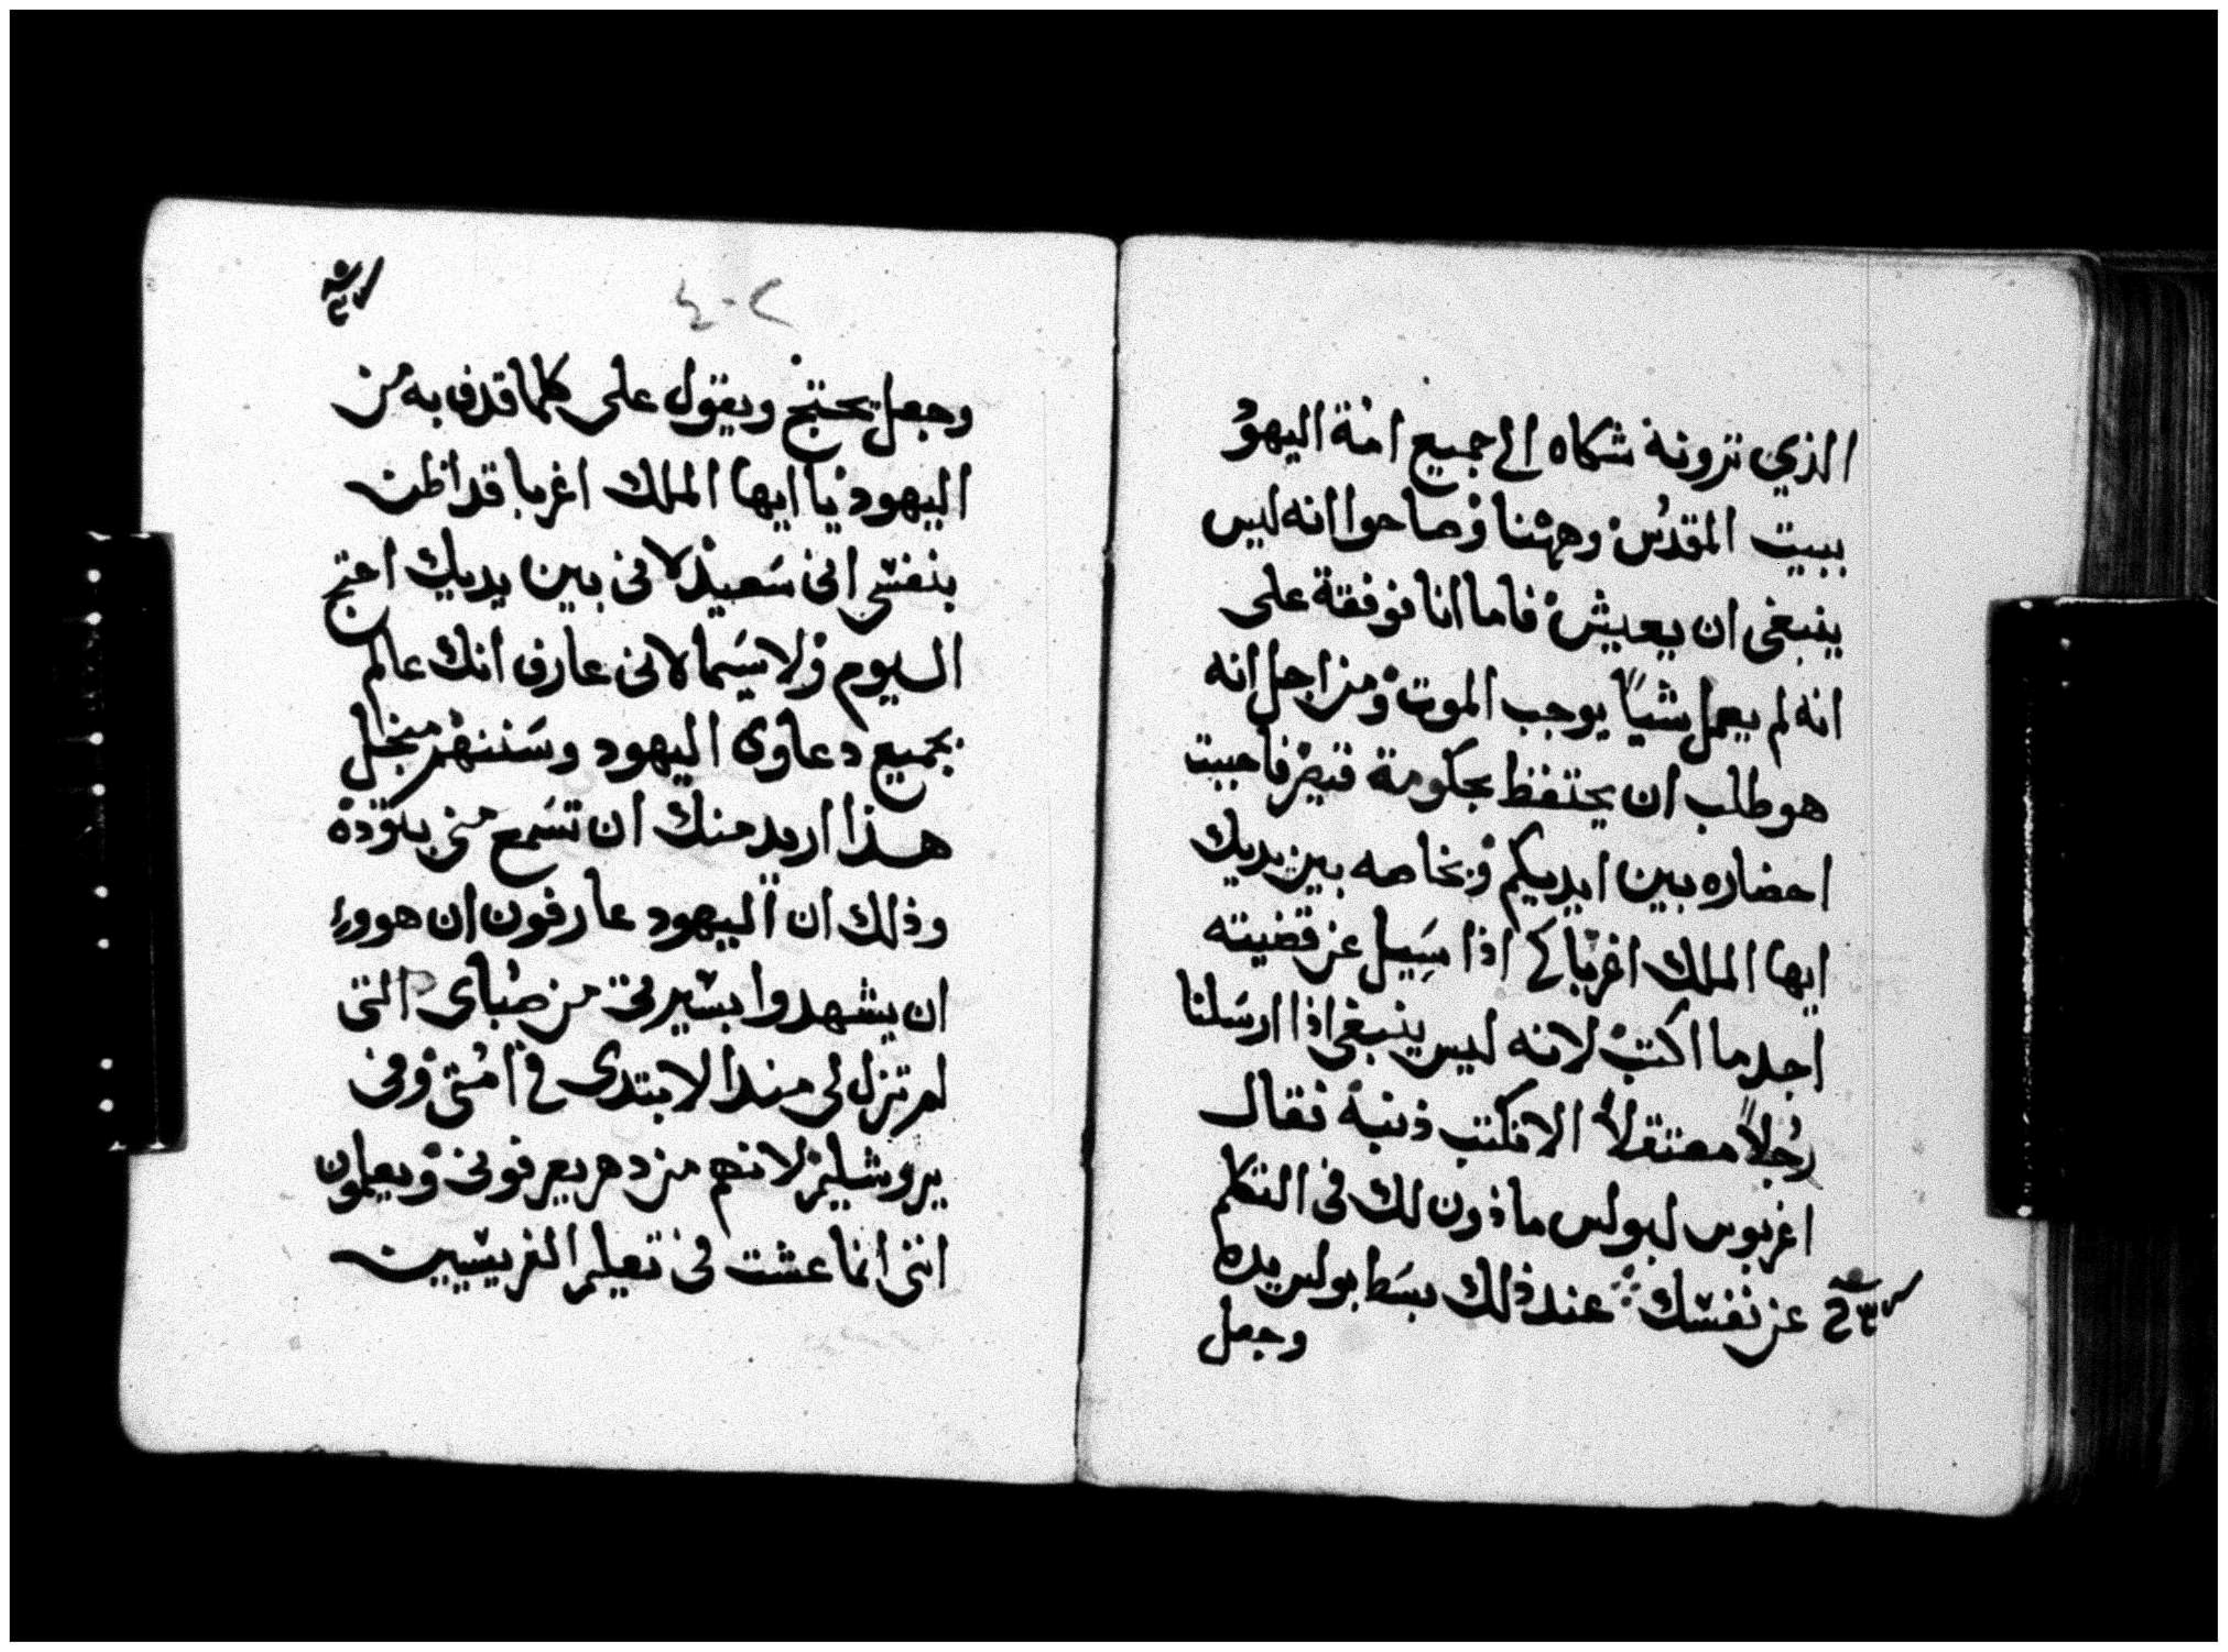 الذي ترونه شكاه الي جميع امة اليهود
ببيت المقدس وههنا وصاحوا انه ليس
ينبغى ان يعيش فاما انا فوفقة على
انه لم يعمل شيًا يوجب الموت ومن اجل انه
هو طلب ان يحتفظ بحكومة قيصر فاحببت
احضاره بين ايديكم وبخاصه بين يديك
ايها الملك اغربا كى اذا سيل عن قضيته
اجد ما اكتب لانه ليس ينبغى اذا ارسلنا
رجلاً معتقلاً الا نكتب ذنبه فقال
اغربوس لبولس ماذون لك فى التكلم
عن نفسك عند ذلك بسط بولس يده
وجعل
٢٠٤
وجعل يحتج ويقول على كلما قدف به من
اليهود يا ايها الملك اغربا قد اظن
بنفسى انى سعيد لانى بين يديك احتج
اليوم ولا سيما لانى عارف انك عالم
بجميع دعاوى اليهود وسننهم من اجل
هذا اريد منك ان تسمع منى بتوده
وذلك ان اليهود عارفون ان هووا
ان يشهدوا بسيرتى من صباى التى
لم تزل لى مند الابتدى فى امتى وفى
يروشليم لانهم من دهر يعرفونى ويعلمون
اننى انما عشت فى تعليم الفريسيين